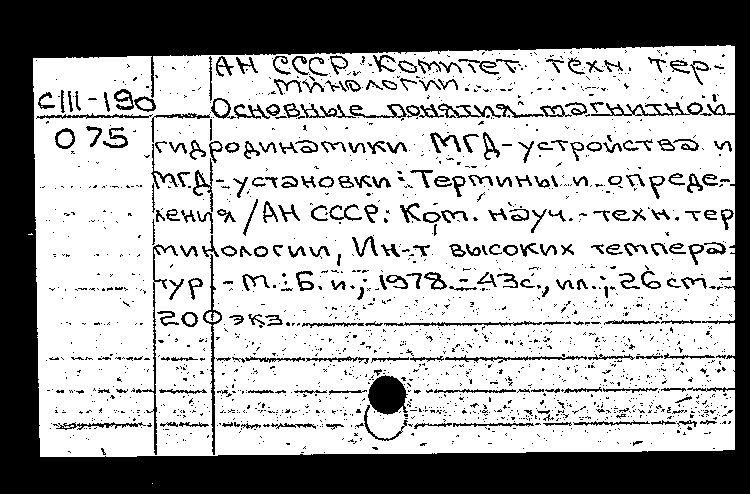 АН СССР. Комитет техн. тер-
минологии.
СIII-190
Основные понятия магнитной
О 75
гидродинамики МГД-устройства и
МГД-установки: Термины и опреде-
ления /АН СССР. Ком. науч.-техн. тер
минологии, Ин-т высоких темпера-
тур. - М.: Б. и., 1978. - 43с., ил.; 26 cm. -
200 экз.